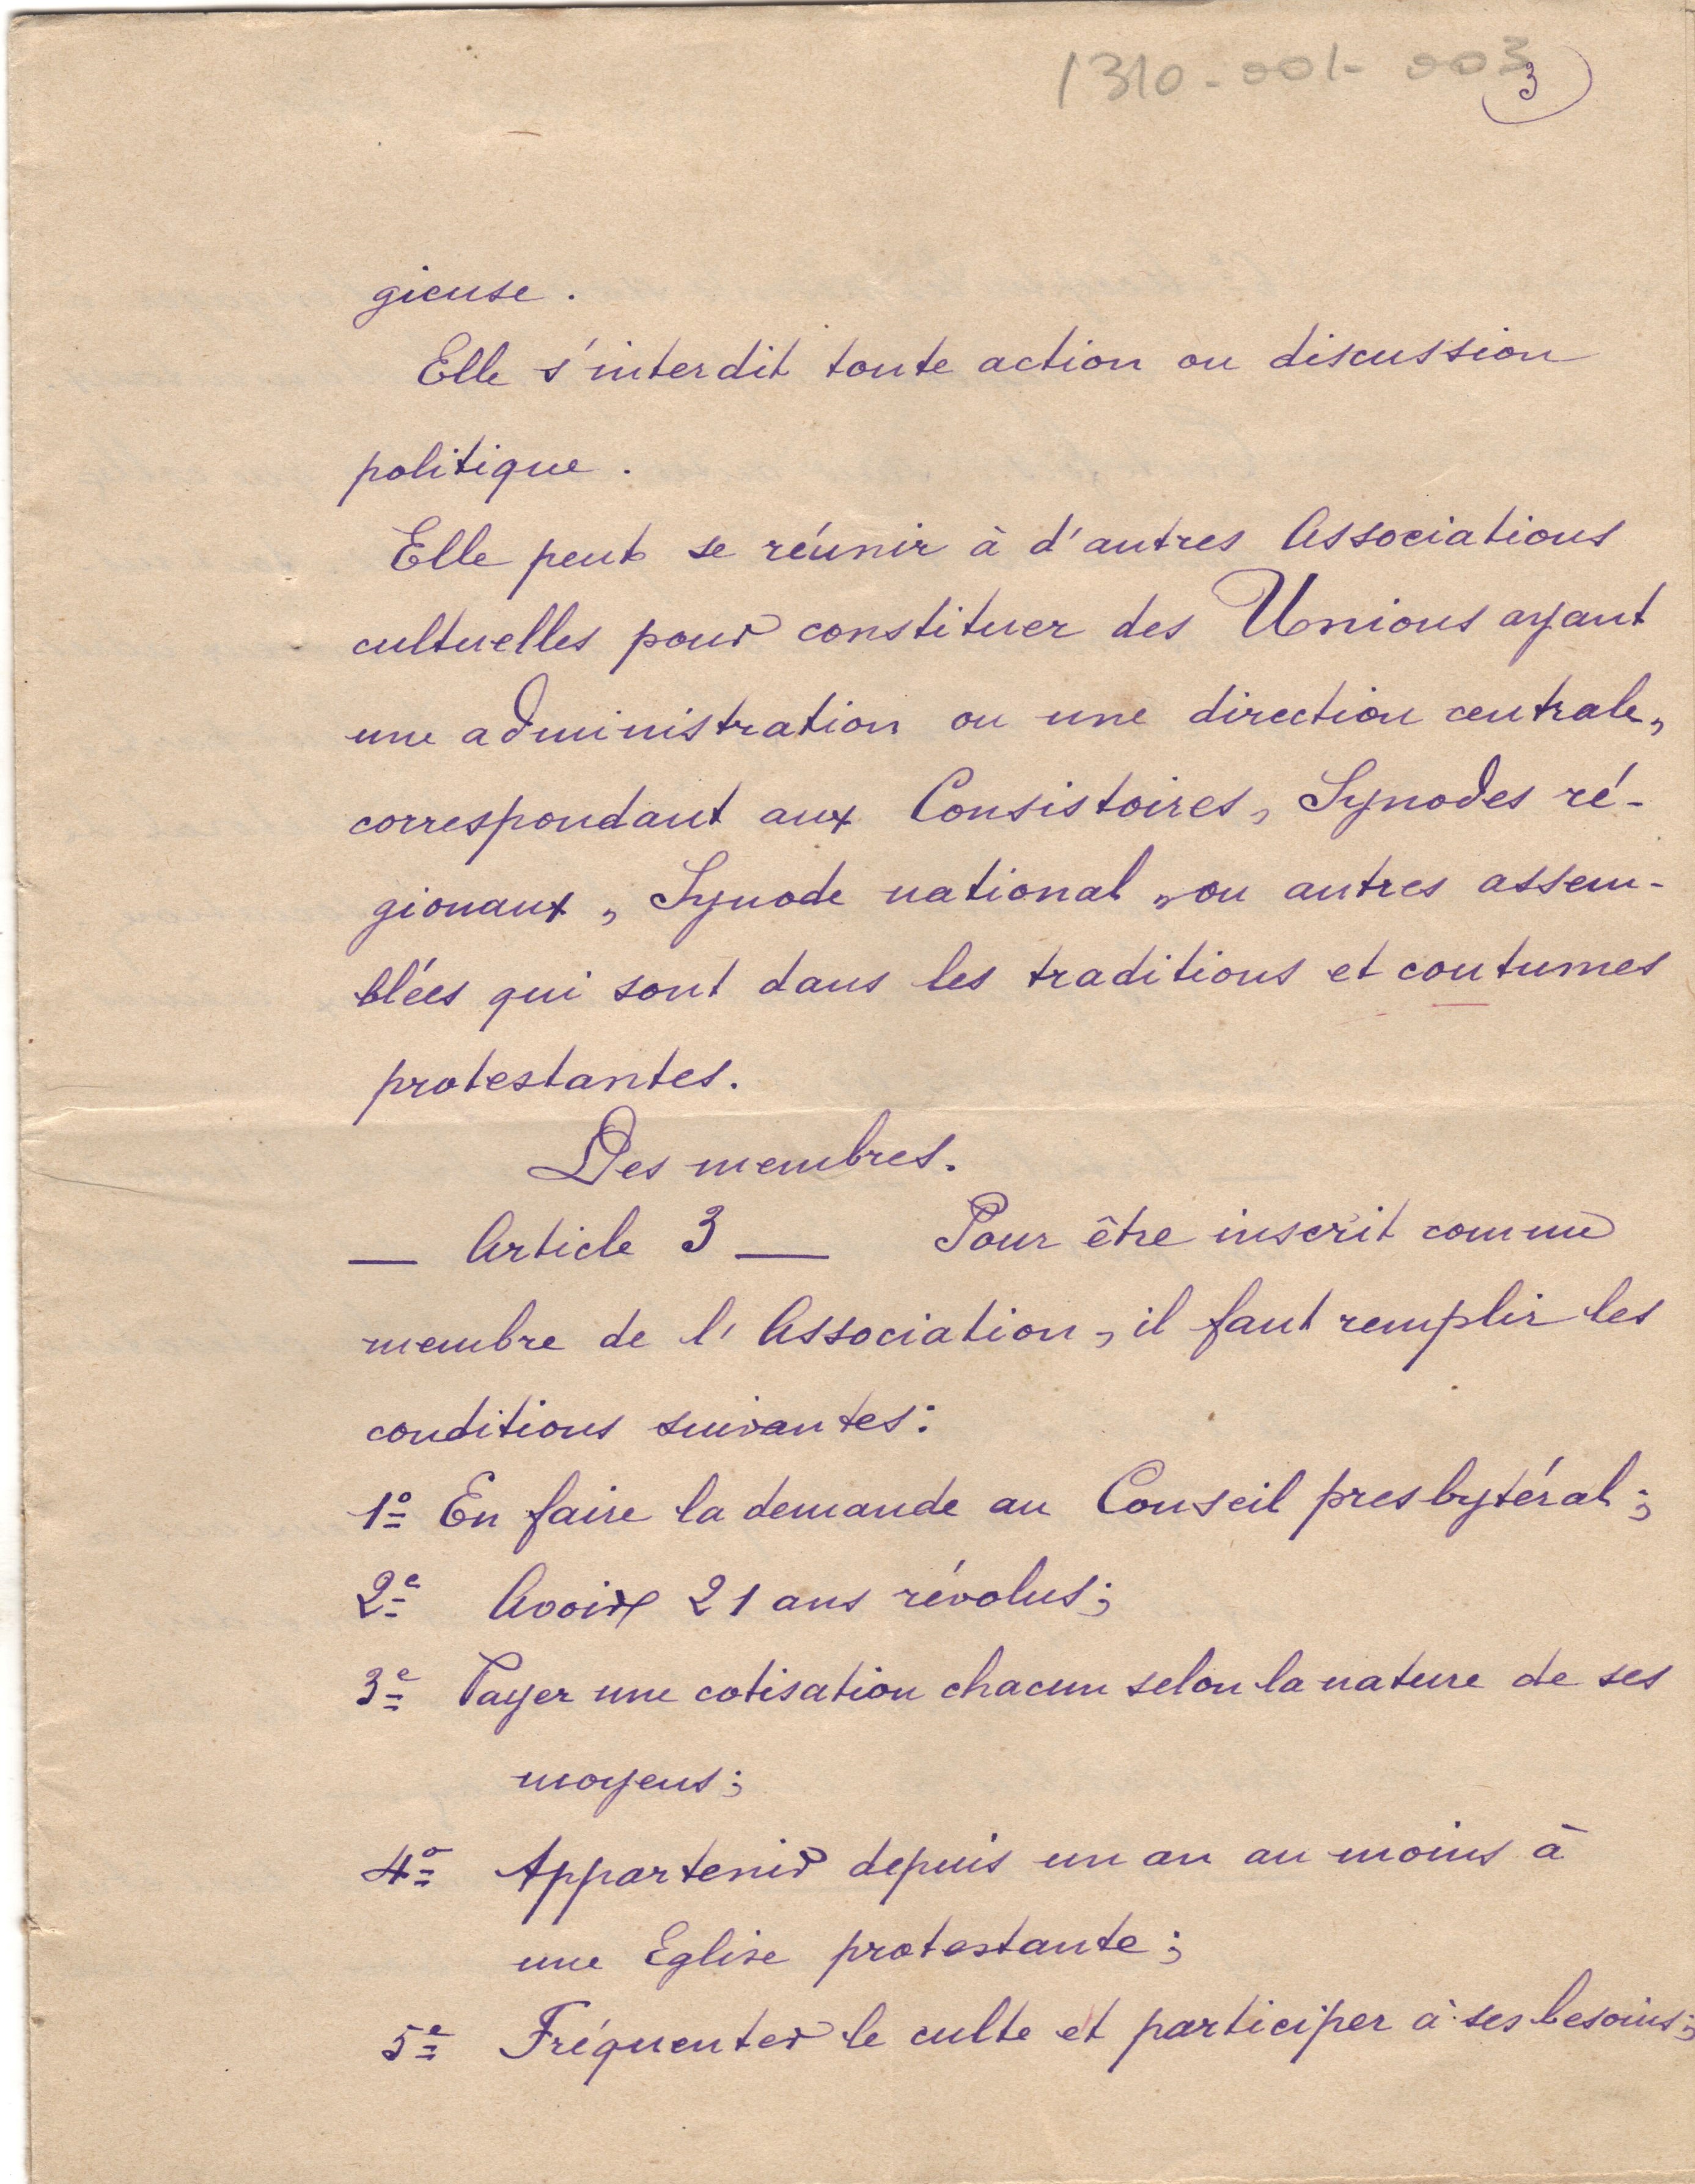 1310-001-003
3
gieuse.
Elle s'interdit toute action ou discussion
politique.
Elle peut se réunir à d'autres Associations
cultuelles pour constituer des Unions ayant
une administration ou une direction centrale,
correspondant aux Consistoires, Synodes ré-
gionaux, Synode national, ou autres assem-
blées qui sont dans les traditions et coutumes
protestantes.
Des membres.
— Article 3 — Pour être inscrit comme
membre de l'Association, il faut remplir les
conditions suivantes:
1º En faire la demande au Conseil presbytéral;
2e Avoir 21 ans révolus;
3e Payer une cotisation chacun selon la nature de ses
moyens;
4º Appartenir depuis un an au moins à
une Eglise protestante;
5e Fréquenter le culte et participer à ses besoins;